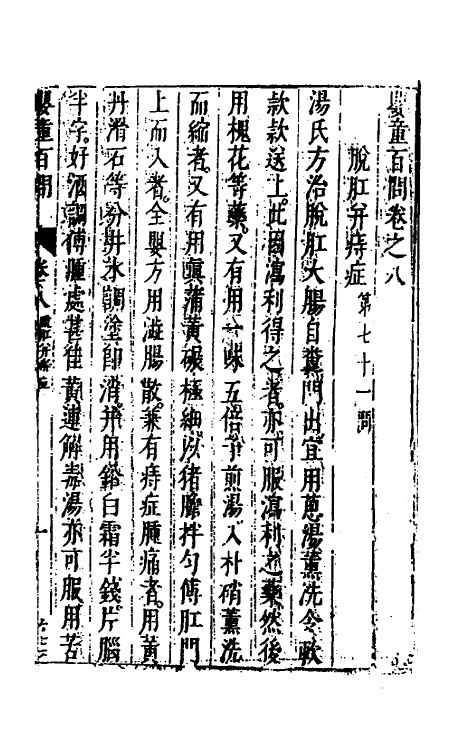 嬰童百問卷之八
脫肛并痔症第七十一問
湯氏方治脫肛大腸自糞門出宜用蔥湯薰洗令軟
款款送上此因瀉利得之者亦可服瀉利之藥然後
用槐花等藥又有用一味五倍子煎湯入朴硝薰洗
而縮者又有用真蒲黃碾極細以猪膽拌勻傅肛門
上而入者全嬰方用滋腸散兼有痔症腫痛者用黃
丹滑石等分井水調塗即消并用鉛白霜半錢片腦
半字好酒調傅腫處甚佳黃連解毒湯亦可服用苦
嬰童百問
卷八
一